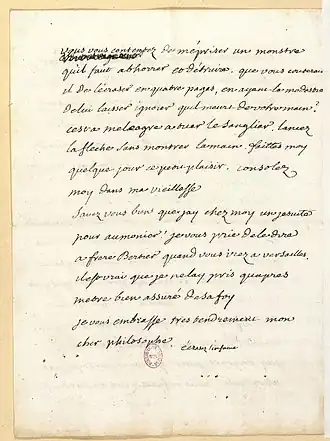 vous vous contentez de mépriser un monstre
qu'il faut abhorrer et détruire. que vous couterait
il de l'écraser en quatre pages, en ayant la modestie
de lui laisser ignorer qu'il meurt de votre main?
c'est a meleagre a tuer le sanglier. lancez
la fleche sans montrer la main. faittes moy
quelque jour ce petit plaisir. consolez
moy dans ma vieillesse
savez vous bien que j'ay chez moy un jesuite
pour aumonier? je vous prie de le dire
a frere Bertier quand vous irez a versailles.
il est vrai que je ne l'ay pris qu'apres
m'etre bien assuré de sa foy
je vous embrasse tres tendrement mon
cher philosophe.
écrasez l'infame